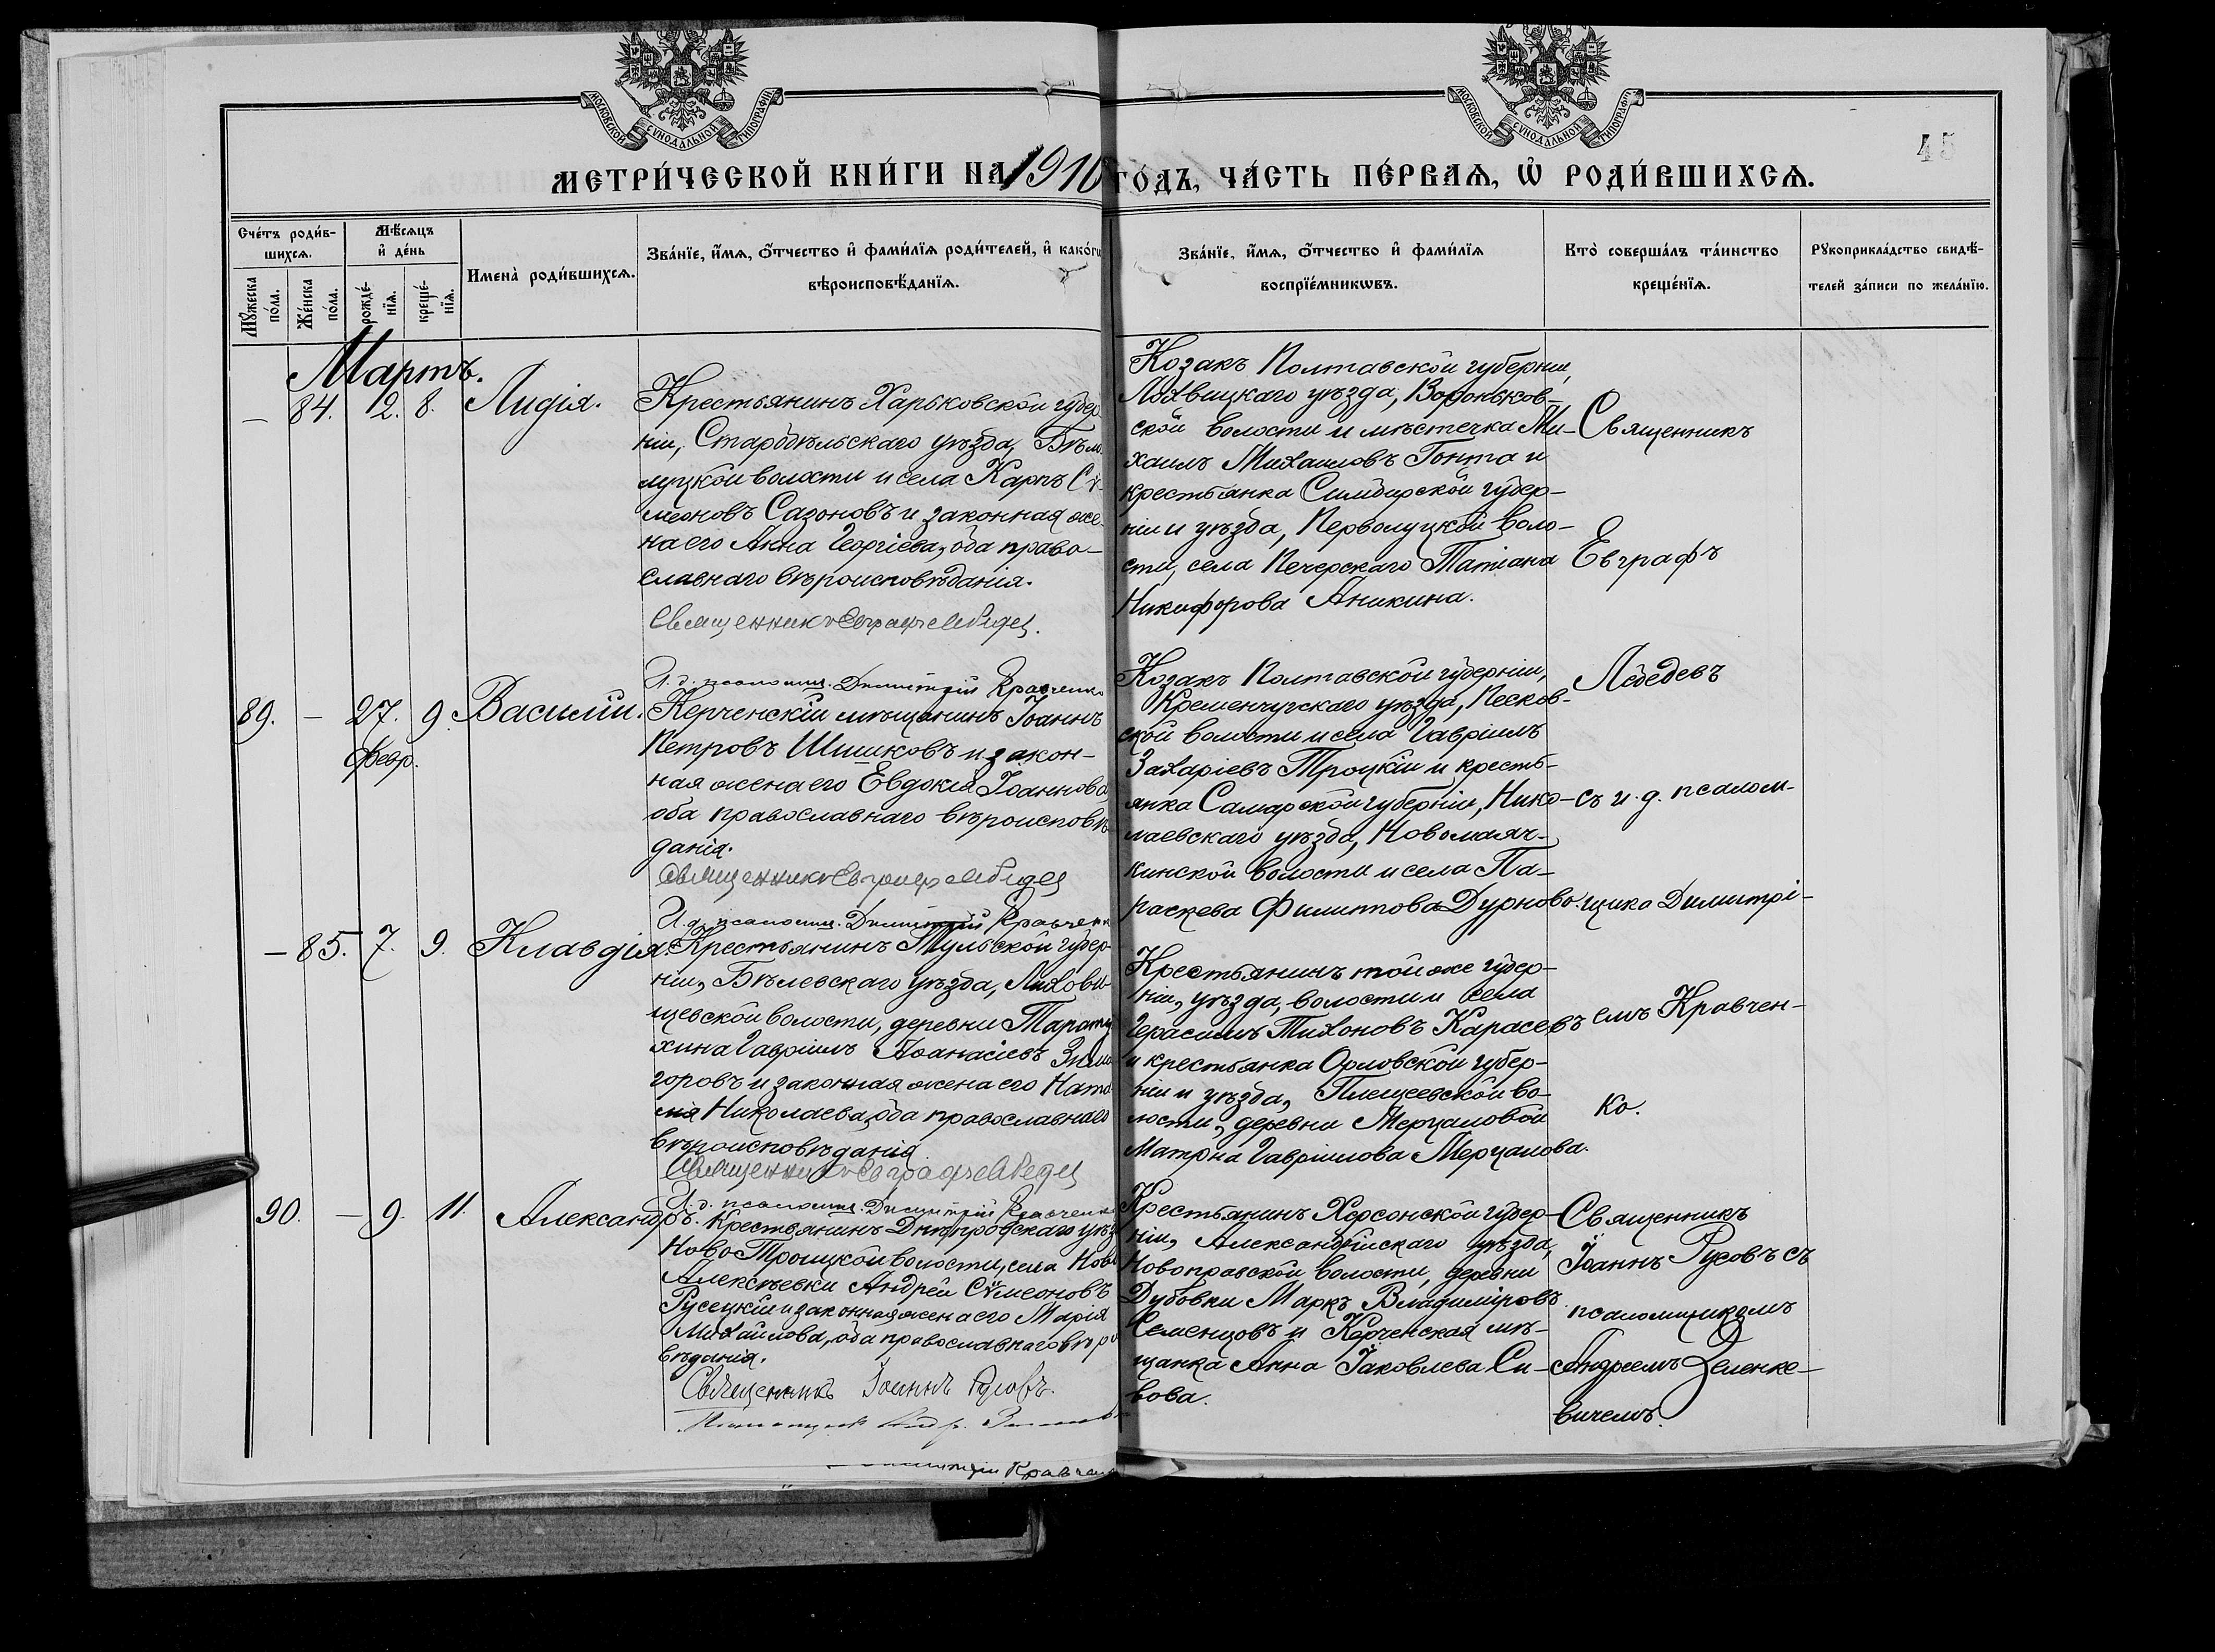 МОСКОВСКОЙ СѴНОДАЛЬНОЙ ТИПОГРАФІИ
МОСКОВСКОЙ СѴНОДАЛЬНОЙ ТИПОГРАФІИ
45
МЕТРИ́ЧЕСКОЙ КНИ́ГИ НА 1910 ГО́ДЪ, ЧА́СТЬ ПЕ́РВАѦ, Ѡ҆ РОДИ́ВШИХСѦ.
Сче́тъ роди́в-
шихсѧ.
Мꙋ́жеска по́ла.
Же́нска по́ла.
Мѣ́сѧцъ
и҆ де́нь
рожде́-
нїѧ.
креще́-
нїѧ.
Имена̀ роди́вшихсѧ.
Зва́нїе, и҆́мѧ, ѻ҆́тчество и҆ фами́лїѧ роди́телей, и҆ како́гѡ
вѣроисповѣ́данїѧ.
Зва́нїе, и҆́мѧ, ѻ҆́тчество и҆ фами́лїѧ
воспрїе́мникѡвъ.
Кто̀ соверша́лъ та́инство
креще́нїѧ.
Рꙋкоприкла́дство свидѣ́-
телей за́писи по жела́нїю.
Мартъ.
— 84. 2. 8. Лидія.
Крестьянинъ Харьковской губер
ніи, Старобѣльскаго уѣзда, Бѣло
луцкой волости и села Карпъ Сѵ-
меоновъ Сазоновъ и законная же-
на его Анна Георгіева, оба право-
славнаго вѣроисповѣданія.
Священникъ Евграфъ Лебедев
И. д. псаломщ. Димитрій Кравченко
Козакъ Полтавской губерніи,
Лохвицкаго уѣзда, Вороньков-
ской волости и мѣстечка Ми-
хаилъ Михаиловъ Гонта и
крестьянка Симбирской губер-
ніи и уѣзда, Перволуцкой воло-
сти, села Печерскаго Татіана
Никифорова Аникина.
Священникъ
Евграфъ
Лебедевъ
съ и. д. псалом-
щика Димитрі-
емъ Кравчен-
ко.
89. — 27. 9. Василій.
Февр.
Керченскій мѣщанинъ Іоаннъ
Петровъ Шишковъ и закон-
ная жена его Евдокія Іоаннова,
оба православнаго вѣроисповѣ
данія.
Священникъ Евграфъ Лебедев
И. д. псаломщ. Димитрій Кравченк
Козакъ Полтавской губерніи,
Кременчугскаго уѣзда, Песков-
ской волости и села Гавріилъ
Захаріевъ Троцкій и кресть-
янка Самарской губерніи, Нико-
лаевскаго уѣзда, Новомаяч-
кинской волости и села Па-
раскева Филиппова Дурново.
— 85. 7. 9. Клавдія.
Крестьянинъ Тульской губер-
ніи, Бѣлевскаго уѣзда, Лихови-
щевской волости, деревни Тарату
хина Гавріилъ Аѳанасіевъ Зимо
горовъ и законная жена его Ната
лія Николаева, оба православнаго
вѣроисповѣданія
Священникъ Евграфъ Лебедев
И. д. псаломщ. Димитрій Кравченко
Крестьянинъ той же губер-
ніи, уѣзда, волости и села
Герасимъ Тихоновъ Карасевъ
и крестьянка Орловской губер-
ніи и уѣзда, Плещеевской во-
лости, деревни Мерцаловой
Матрона Гавріилова Мерцалова.
90. — 9. 11. Александръ.
Крестьянинъ Днѣпровскаго уѣз
Ново Троицкой волости, села Ново
Алексѣевки Андрей Сѵмеоновъ
Русецкій и законная жена его Марія
Михаилова, оба православнаго вѣро
вѣданія.
Священникъ Іоаннъ Русовъ.
Крестьянинъ Херсонской губер-
ніи, Александрійскаго уѣзда,
Новопражской волости, деревни
Дубовки Маркъ Владиміровъ
Семенцовъ и Керченская мѣ-
щанка Анна Іаковлева Си-
вова.
Священникъ
Іоаннъ Русовъ съ
псаломщикомъ
Андреемъ Зеленке-
вичемъ.
Кравчен